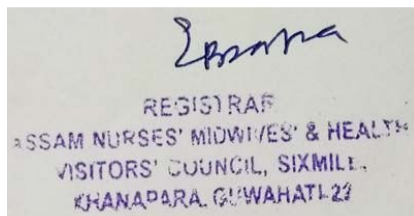 REGISTRAR
ASSAM NURSES' MIDWIVES' & HEALTH
VISITORS' COUNCIL, SIXMILE,
KHANAPARA, GUWAHATI-22